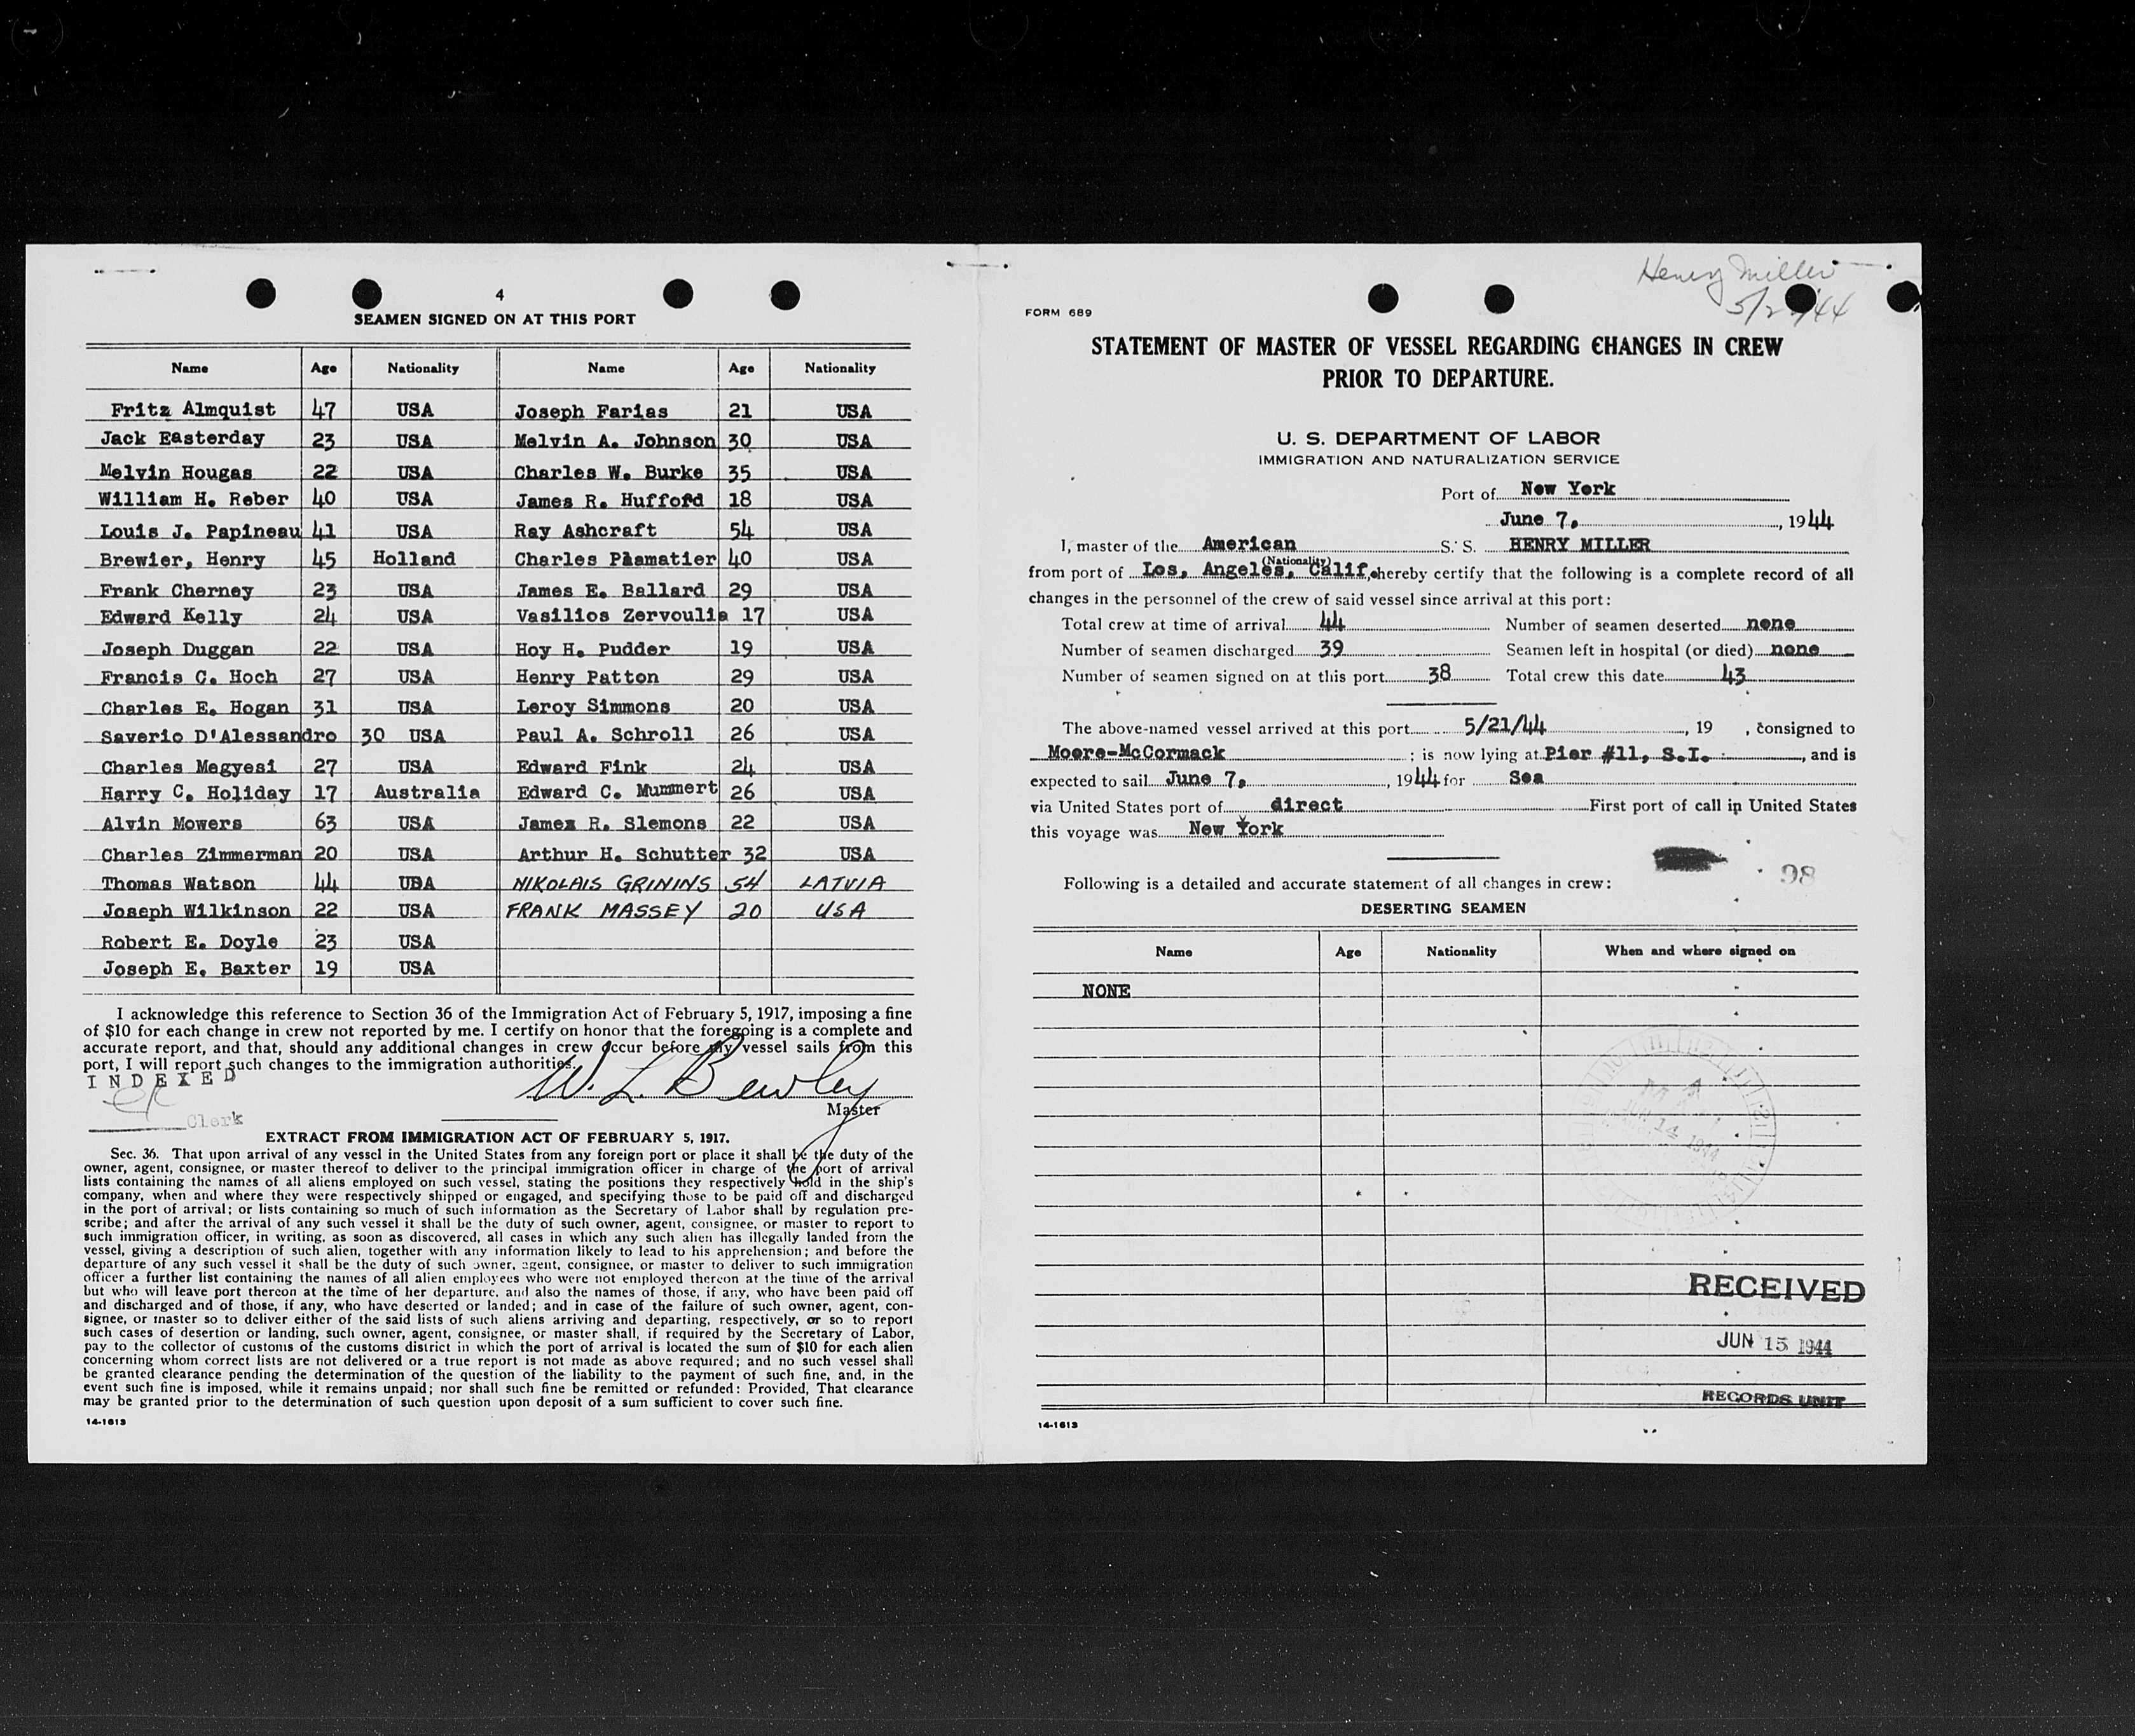 4
SEAMEN SIGNED ON AT THIS PORT
Name Age Nationality Name Age Nationality
Fritz Almquist 47 USA Joseph Farias 21 USA
Jack Easterday 23 USA Melvin A. Johnson 30 USA
Melvin Hougas 22 USA Charles W. Burke 35 USA
William H. Reber 40 USA James R. Hufford 18 USA
Louis J. Papineau 41 USA Ray Ashcraft 54 USA
Brewier, Henry 45 Holland Charles Plamatier 40 USA
Frank Cherney 23 USA James E. Ballard 29 USA
Edward Kelly 24 USA Vasilios Zervoulis 17 USA
Joseph Duggan 22 USA Hoy H. Pudder 19 USA
Francis C. Hoch 27 USA Henry Patton 29 USA
Charles E. Hogan 31 USA Leroy Simmons 20 USA
Saverio D'Alessandro 30 USA Paul A. Schroll 26 USA
Charles Megyesi 27 USA Edward Fink 24 USA
Harry C. Holiday 17 Australia Edward C. Mummert 26 USA
Alvin Mowers 63 USA James R. Slemons 22 USA
Charles Zimmerman 20 USA Arthur H. Schutter 32 USA
Thomas Watson 44 USA NIKOLAIS GRININS 54 LATVIA
Joseph Wilkinson 22 USA FRANK MASSEY 20 USA
Robert E. Doyle 23 USA
Joseph E. Baxter 19 USA
I acknowledge this reference to Section 36 of the Immigration Act of February 5, 1917, imposing a fine
of $10 for each change in crew not reported by me. I certify on honor that the foregoing is a complete and
accurate report, and that, should any additional changes in crew occur before my vessel sails from this
port, I will report such changes to the immigration authorities.
INDEXED
W. L. Bewley
Master
Clerk
EXTRACT FROM IMMIGRATION ACT OF FEBRUARY 5, 1917.
Sec. 36. That upon arrival of any vessel in the United States from any foreign port or place it shall be the duty of the
owner, agent, consignee, or master thereof to deliver to the principal immigration officer in charge of the port of arrival
lists containing the names of all aliens employed on such vessel, stating the positions they respectively hold in the ship's
company, when and where they were respectively shipped or engaged, and specifying those to be paid off and discharged
in the port of arrival; or lists containing so much of such information as the Secretary of Labor shall by regulation pre-
scribe; and after the arrival of any such vessel it shall be the duty of such owner, agent, consignee, or master to report to
such immigration officer, in writing, as soon as discovered, all cases in which any such alien has illegally landed from the
vessel, giving a description of such alien, together with any information likely to lead to his apprehension; and before the
departure of any such vessel it shall be the duty of such owner, agent, consignee, or master to deliver to such immigration
officer a further list containing the names of all alien employees who were not employed thereon at the time of the arrival
but who will leave port thereon at the time of her departure, and also the names of those, if any, who have been paid off
and discharged and of those, if any, who have deserted or landed; and in case of the failure of such owner, agent, con-
signee, or master so to deliver either of the said lists of such aliens arriving and departing, respectively, or so to report
such cases of desertion or landing, such owner, agent, consignee, or master shall, if required by the Secretary of Labor,
pay to the collector of customs of the customs district in which the port of arrival is located the sum of $10 for each alien
concerning whom correct lists are not delivered or a true report is not made as above required; and no such vessel shall
be granted clearance pending the determination of the question of the liability to the payment of such fine, and, in the
event such fine is imposed, while it remains unpaid; nor shall such fine be remitted or refunded: Provided, That clearance
may be granted prior to the determination of such question upon deposit of a sum sufficient to cover such fine.
14-1613
Henry Miller
FORM 689
STATEMENT OF MASTER OF VESSEL REGARDING CHANGES IN CREW
PRIOR TO DEPARTURE.
U. S. DEPARTMENT OF LABOR
IMMIGRATION AND NATURALIZATION SERVICE
Port of New York
June 7, , 1944
I, master of the American S. S. HENRY MILLER
(Nationality)
from port of Los, Angeles, Calif, hereby certify that the following is a complete record of all
changes in the personnel of the crew of said vessel since arrival at this port:
Total crew at time of arrival 44 Number of seamen deserted none
Number of seamen discharged 39 Seamen left in hospital (or died) none
Number of seamen signed on at this port 38 Total crew this date 43
The above-named vessel arrived at this port 5/21/44 , 19 , consigned to
Moore-McCormack ; is now lying at Pier #11, S.I. , and is
expected to sail June 7, , 1944 for Sea
via United States port of direct First port of call in United States
this voyage was New York
98
Following is a detailed and accurate statement of all changes in crew:
DESERTING SEAMEN
Name Age Nationality When and where signed on
NONE
JUN 14 1944
RECEIVED
JUN 15 1944
RECORDS UNIT
14-1613